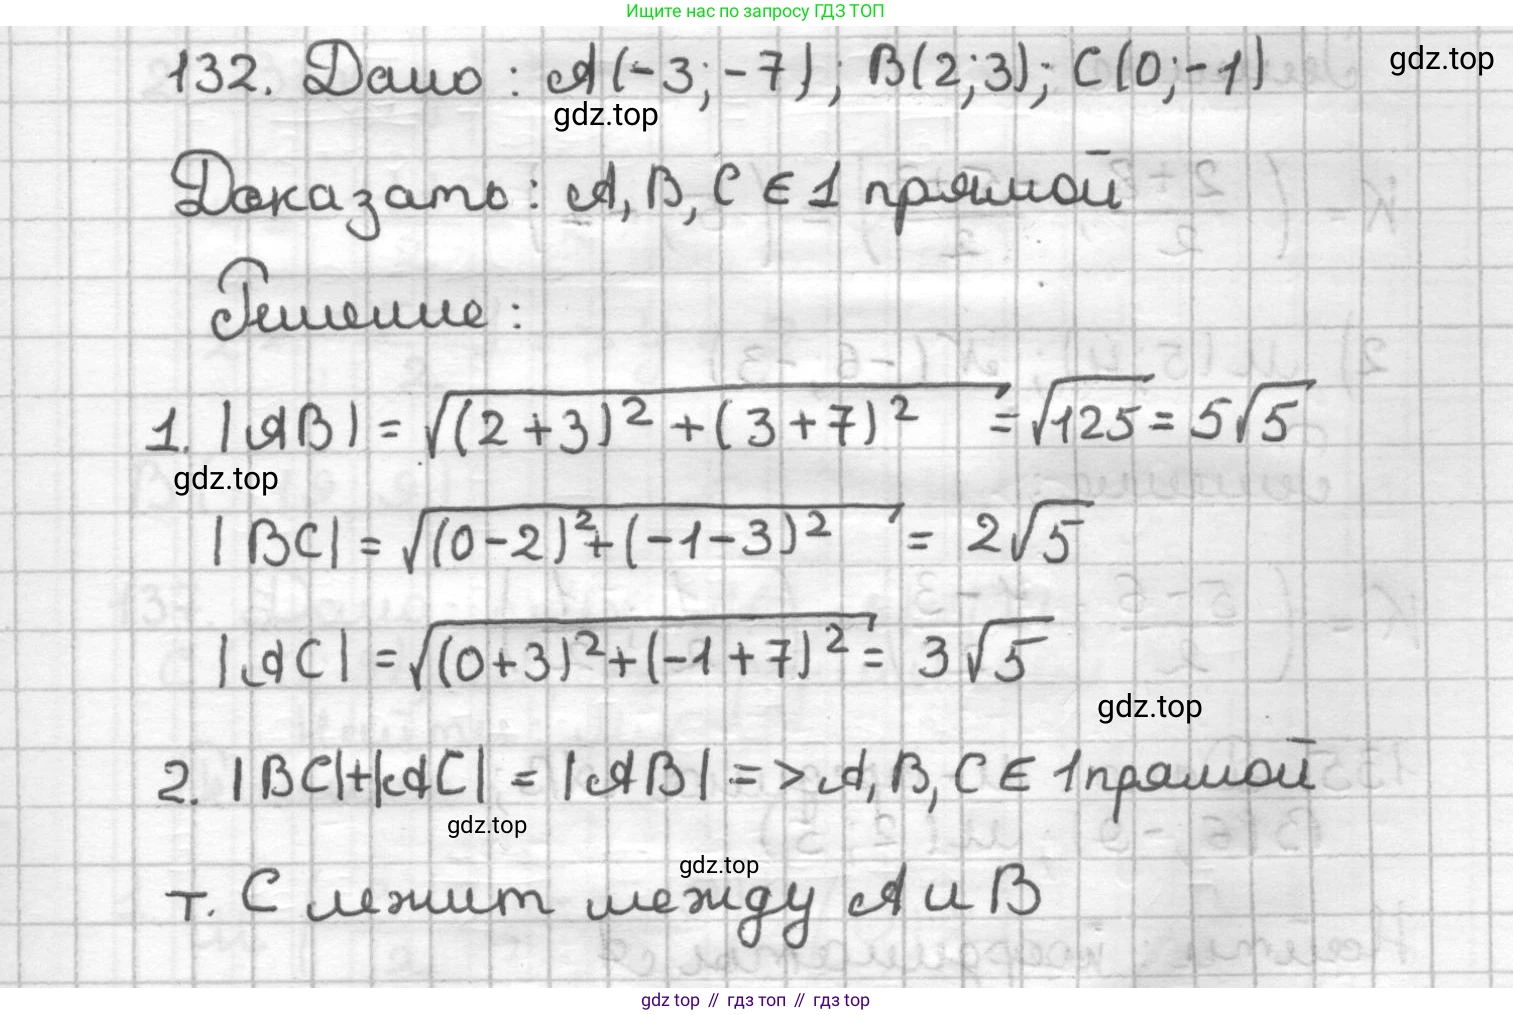 Ищите нас по запросу ГДЗ ТОП
132. Дано: A(-3;-7); B(2;3); C(0;-1)
gdz.top
gdz.top
Доказать: A, B, C ∈ 1 прямой
Решение:
1. |AB| = √((2+3)² + (3+7)²) = √125 = 5√5
gdz.top
|BC| = √((0-2)² + (-1-3)²) = 2√5
|AC| = √((0+3)² + (-1+7)²) = 3√5
gdz.top
2. |BC|+|AC| = |AB| => A, B, C ∈ 1 прямой
gdz.top
gdz.top
т. C лежит между A и B
gdz top // гдз топ // гдз top